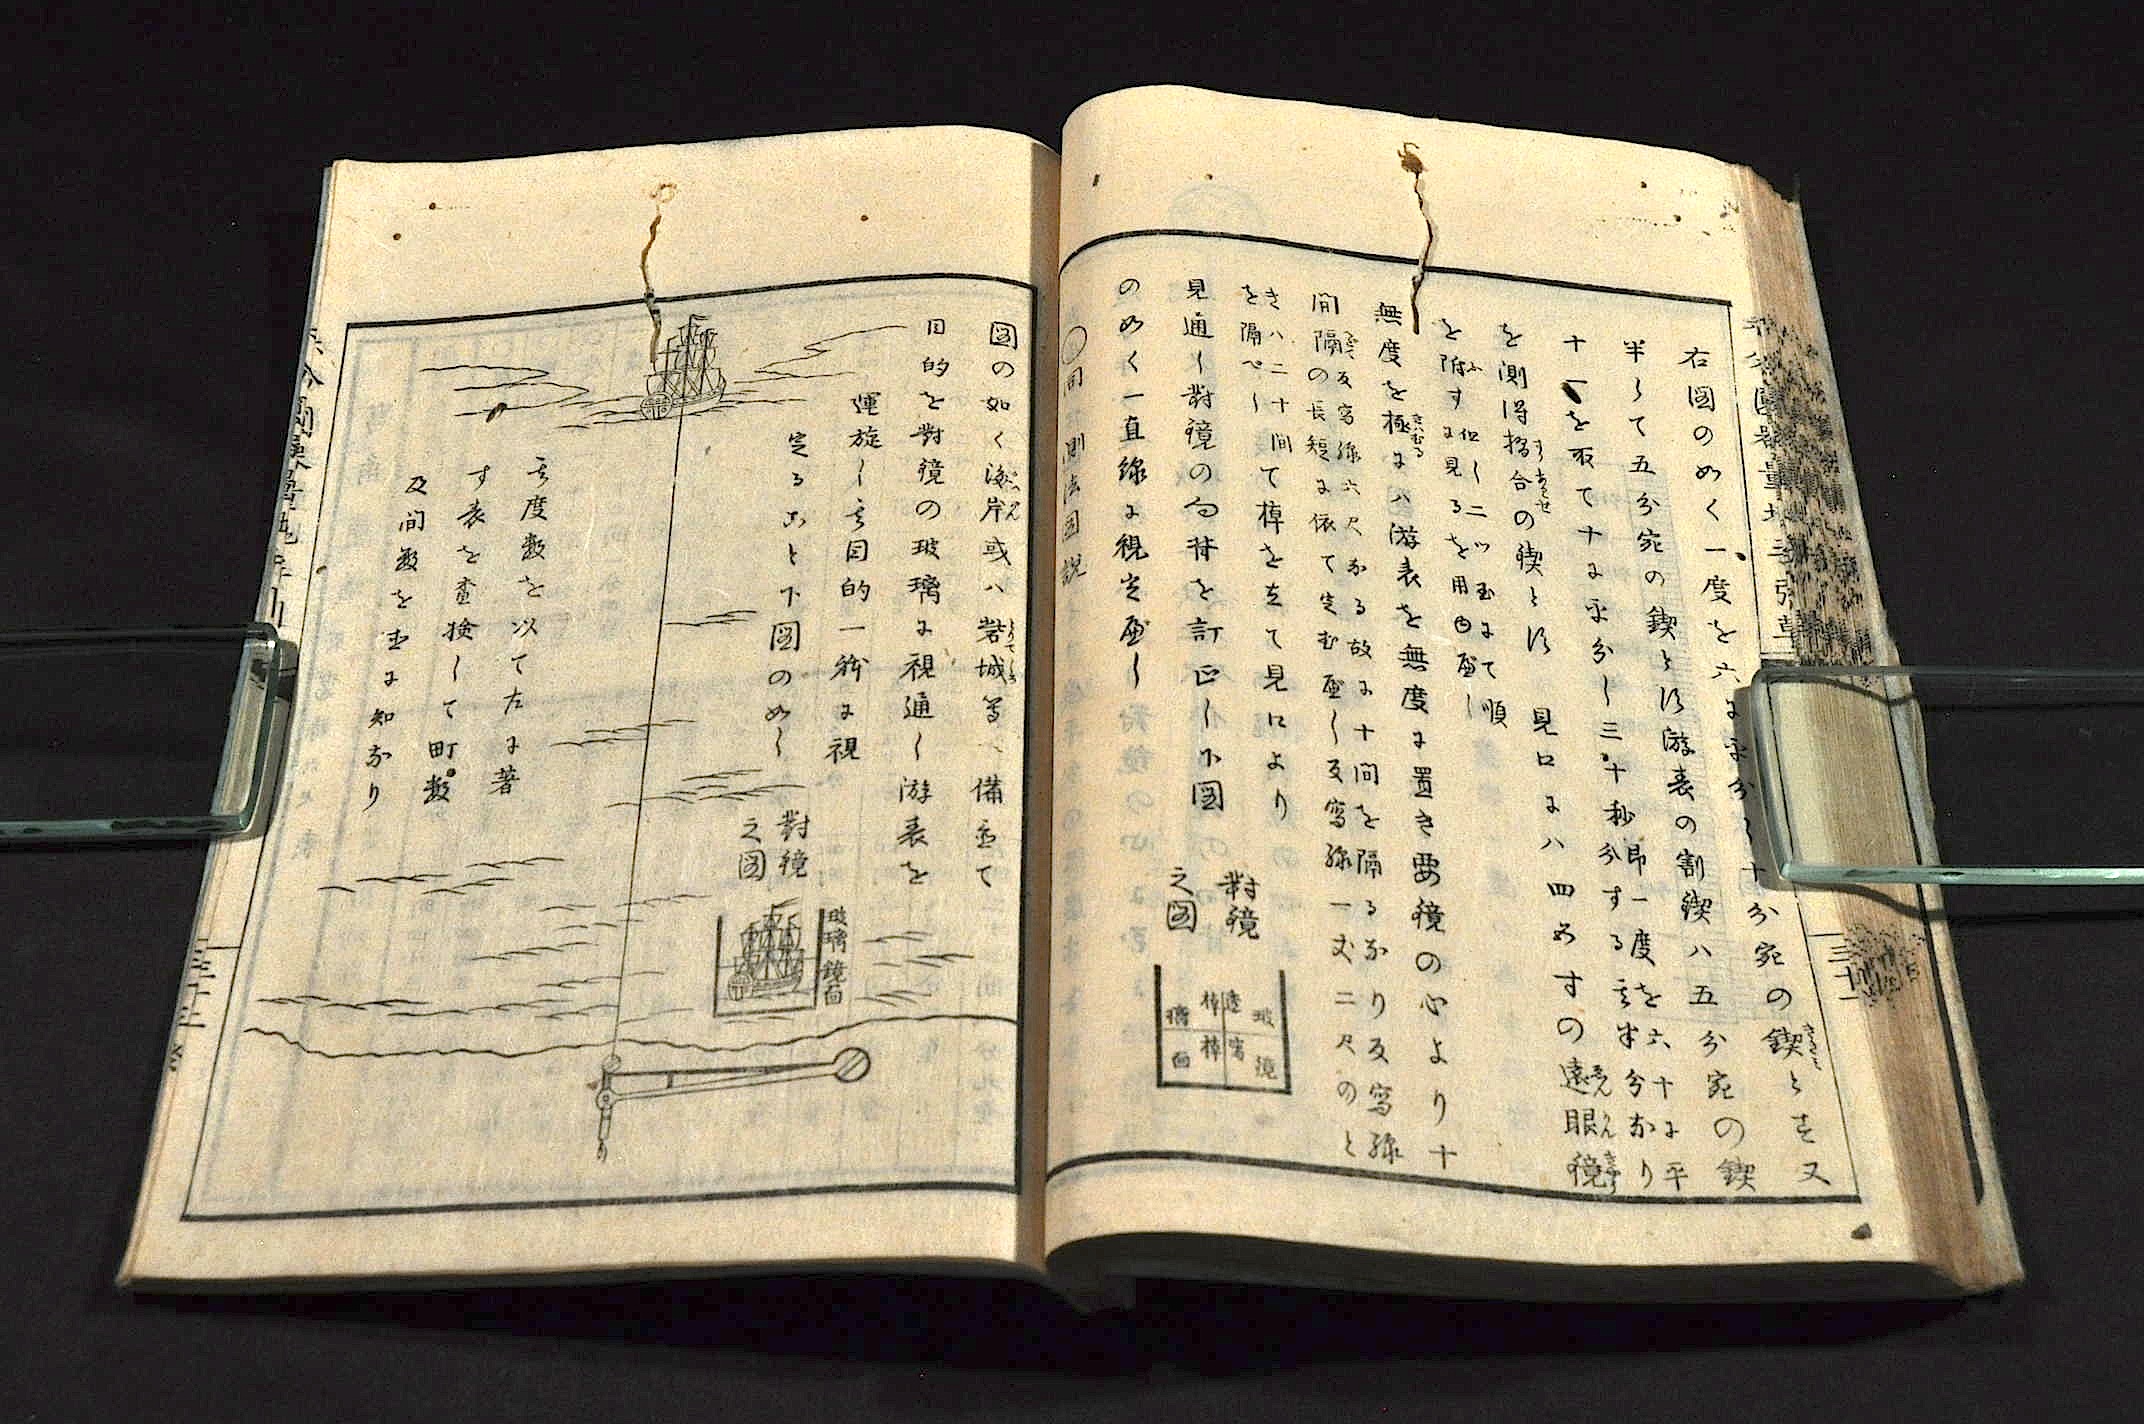 右図のめく一度を六に平分し十分宛の鍥とす又
半して五分宛の鍥と游表の割鍥ハ五分宛の鍥
十一を取て十に平分し三十秒即一度を六十に平
分する半分なり
を測得摺合の鍥と 見口にハ四めすの遠眼鏡
を附す 但し二ツ玉にて順
に見るを用由べし
無度を極にハ游表を無度に置き要鏡の心より十
間隔 反寫線六尺なる故に十間を隔るなり反寫線
の長短に依て定むべし反寫線一丈二尺のと
きハ二十間
を隔べし て棹を立て見口により
見通し對鏡の向背を訂正し下図
のめく一直線に視定べし
對鏡
之図
玻璃鏡面
透寫
棹棹
○同 測法図説
図の如く海岸或ハ砦城等へ備立て
目的を對鏡の玻璃に視通し游表を
運旋し其目的一躰に視
定ること下図のめし
對鏡
之図
玻璃鏡面
其度数を以て左に著
す表を査検して町数
及間数を立に知なり
三十一